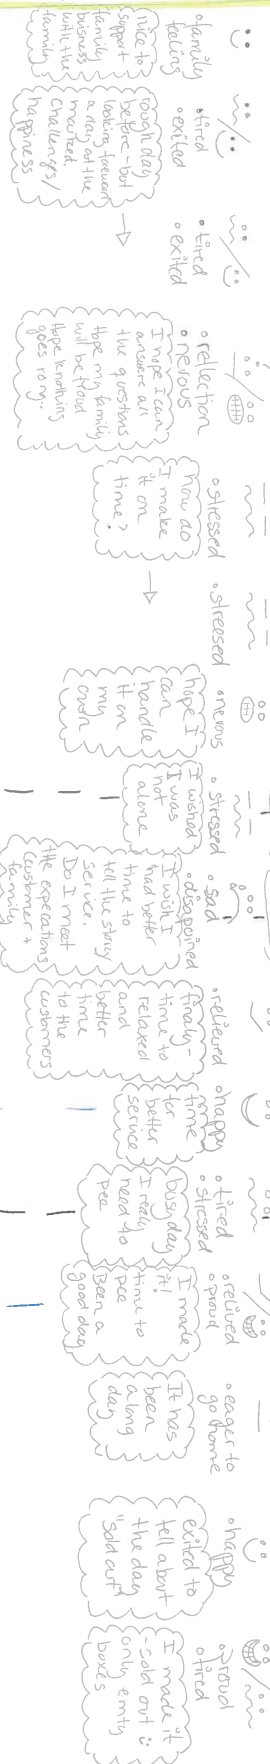 • family
feeling
nice to
support
family
business
with the
family
• tired
• exited
rough day
before - but
looking forward
a day at the
marked
challenges/
happiness
• tired
• exited
• reflection
• nervous
I hope I can
answere all
the questions
Hope my family
will be proud
Hope knothing
goes rong..
• stressed
how do
I make
it on
time?
• streesed
• nervous
hope I
can
handle
it on
my
own
• stressed
I wished
I was
not
alone
• sad
• disapoined
I wish I
had better
time to
tell the story
service.
Do I meet
the expecrations
customer +
family
• relieved
finaly -
time to
relaxed
and
better
time
to the
customers
• happy
time
for
better
service
• tired
• stressed
busy day
I realy
need to
pee
• relived
• proud
I made
it!
time to
pee
Been a
good day
• eager to
go home
It has
been
a long
day
• happy
exited to
tell about
the day
"Sold out"
• proud
• tired
I made it
- sold out :)
only emty
boxes